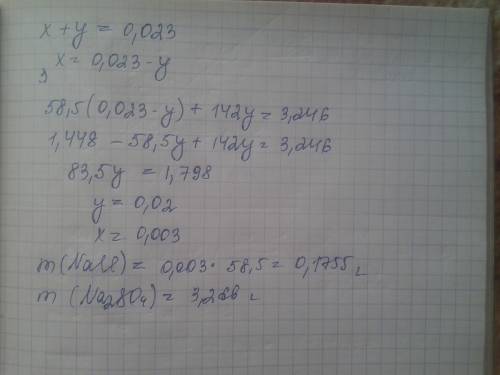 x + y = 0,023
x = 0,023 - y
58,5(0,023 - y) + 142y = 3,246
1,448 - 58,5y + 142y = 3,246
83,5y = 1,798
y = 0,02
x = 0,003
m(NaCl) = 0,003 · 58,5 = 0,1755 г
m(Na₂SO₄) = г